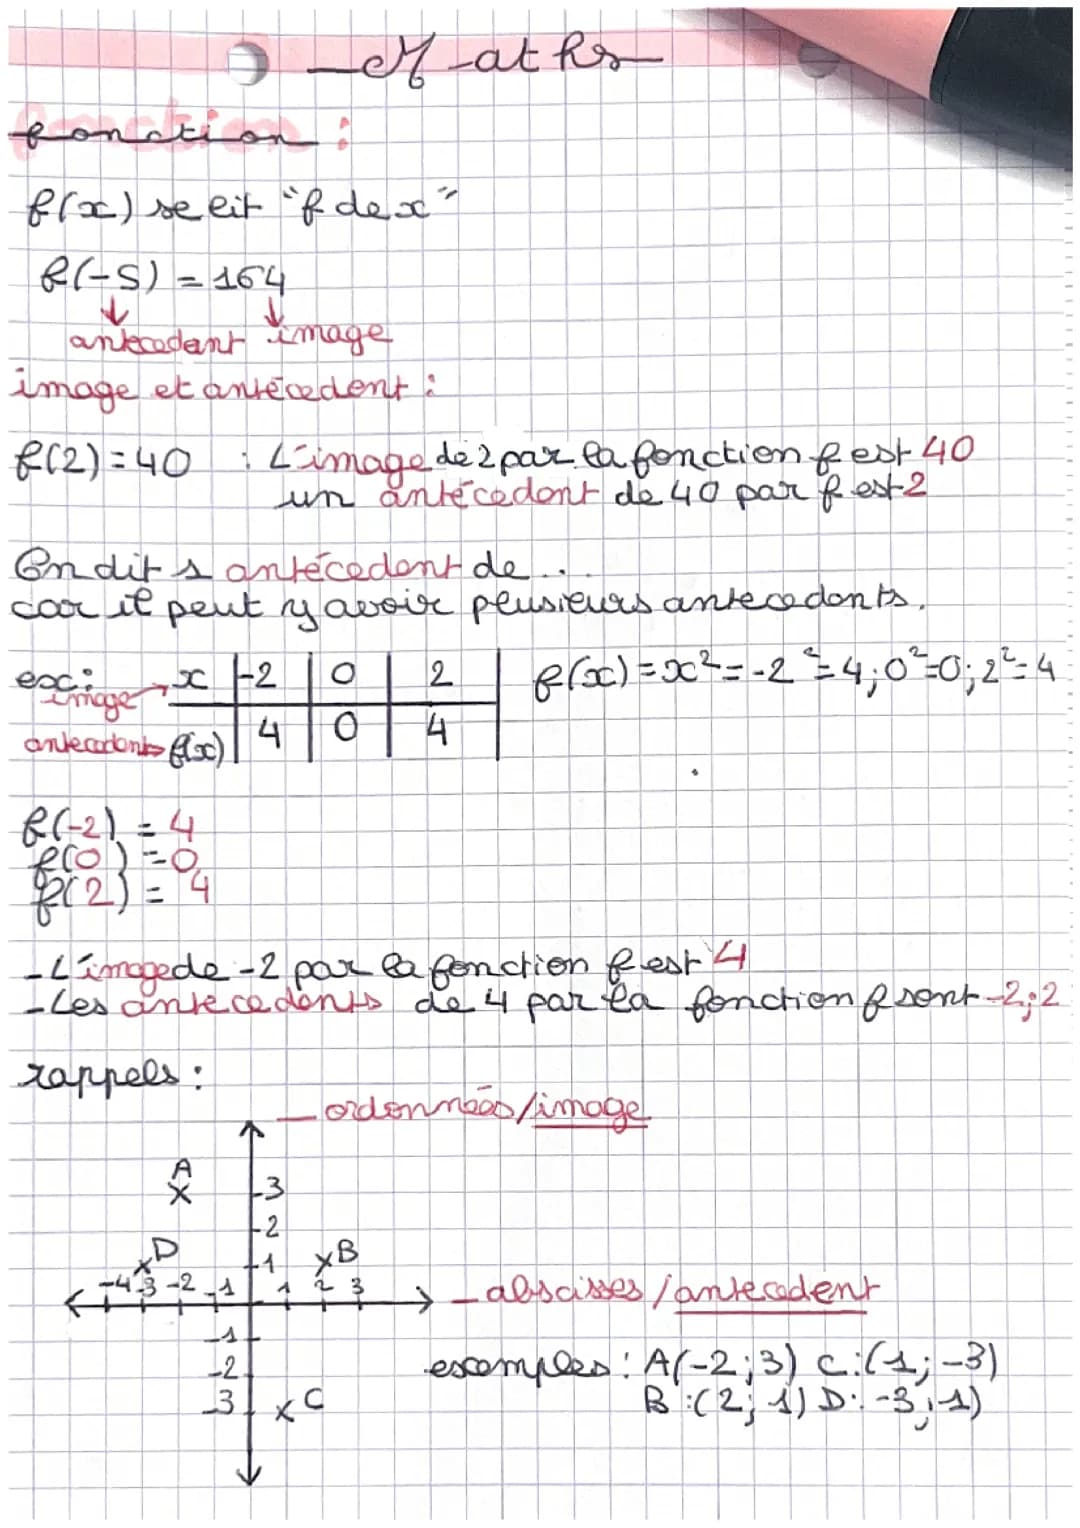 Maths
fonction :
f(x) se lit "f de x"
f(-5) = 164
antecedent image
image et antécedent :
f(2) = 40 : L'image de 2 par la fonction f est 40
un antécedent de 40 par f est 2
On dit 1 antécedent de ...
car il peut y avoir plusieurs antecedents.
ex: x -2 0 2 f(x) = x² = -2² = 4 ; 0² = 0 ; 2² = 4
image
antecedents f(x) 4 0 4
f(-2) = 4
f(0) = 0
f(2) = 4
- L'image de -2 par la fonction f est 4
- Les antecedents de 4 par la fonction f sont -2 ; 2
rappels :
ordonnées / image
A
3
2
D 1 B
-4 -3 -2 -1 1 2 3
abscisses / antecedent
-1
-2
-3 C
exemples : A(-2 ; 3) C : (1 ; -3)
B : (2 ; 1) D : -3 ; 1)